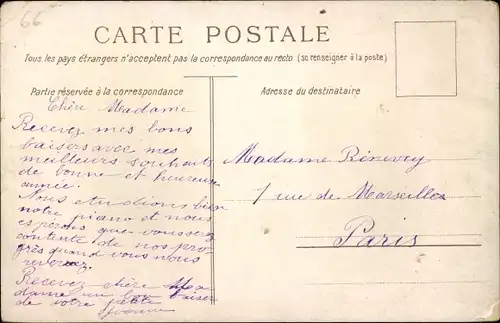 66
CARTE POSTALE
Tous les pays étrangers n'acceptent pas la correspondance au recto (se renseigner à la poste)
Partie réservée à la correspondance
Adresse du destinataire
Chère Madame
Recevez mes bons
baisers avec mes
meilleurs souhaits
de bonne et heureuse
année.
Nous etudions bien
notre piano et nous
esperons que vous serez
contente de nos pro
grès quand vous nous
reverez.
Recevez chère Ma
dame un bon baiser
de votre petite
Yvonne
Madame
7 rue de Marseilles
Paris